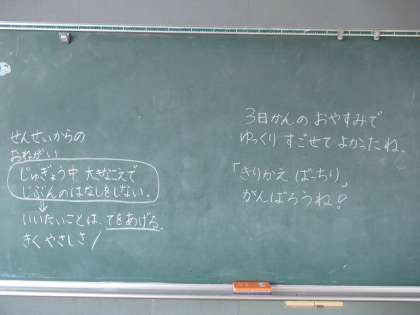 せんせいからの
おねがい
じゅぎょう中 大きなこえで
じぶんのはなしをしない。
↓
いいたいことは、てをあげる。
きくやさしさ！
3日かんの おやすみで
ゆっくり すごせて よかったね。
「きりかえ ばっちり」
がんばろうね！